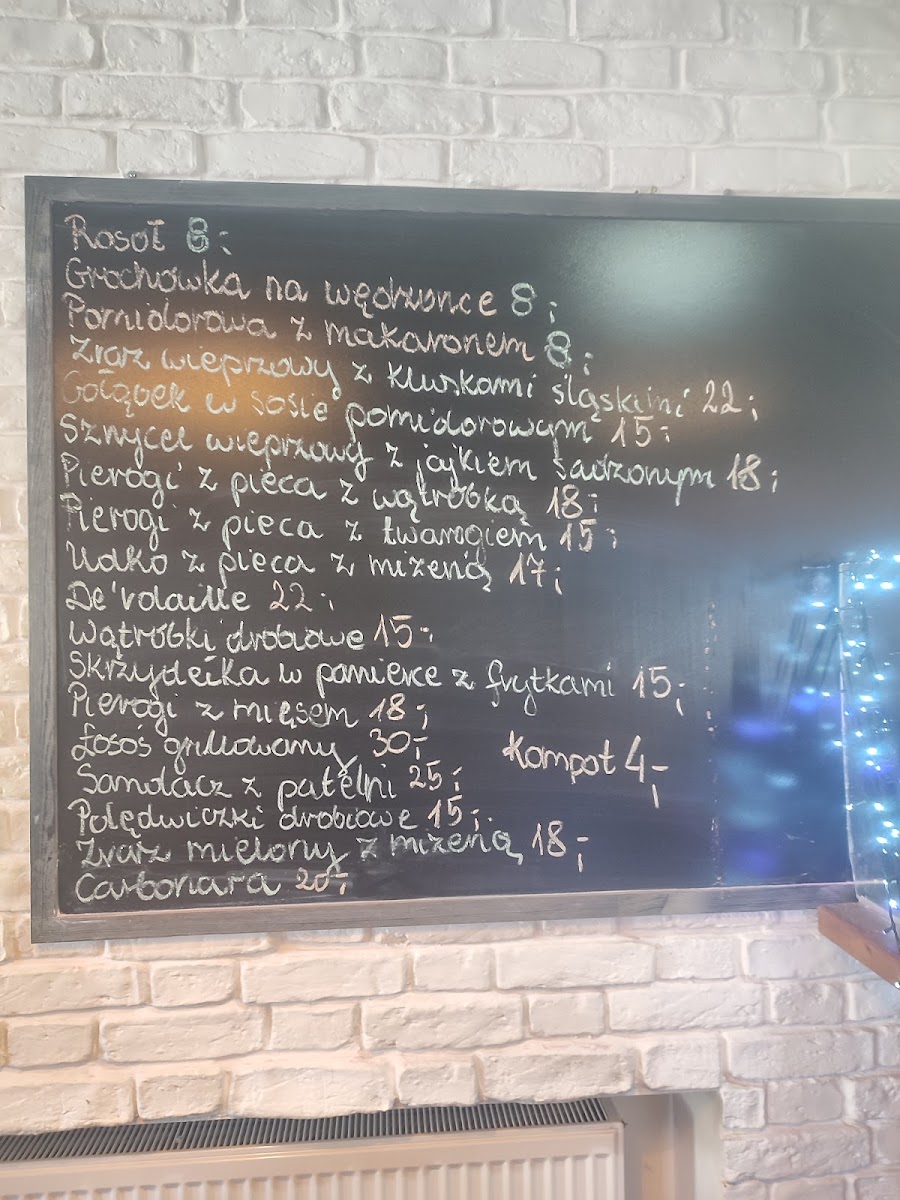 Rosół 8,-
Grochówka na wędzonce 8,-
Pomidorowa z makaronem 8,-
Zraz wieprzowy z kluskami śląskimi 22,-
Gołąbek w sosie pomidorowym 15,-
Sznycel wieprzowy z jajkiem sadzonym 18,-
Pierogi z pieca z wątróbką 18,-
Pierogi z pieca z twarogiem 15,-
Udko z pieca z mizerią 17,-
De'volaille 22,-
Wątróbki drobiowe 15,-
Skrzydełka w panierce z frytkami 15,-
Pierogi z mięsem 18,-
Łosoś grillowany 30,-
Kompot 4,-
Sandacz z patelni 25,-
Polędwiczki drobiowe 15,-
Zraz mielony z mizerią 18,-
Carbonara 20,-